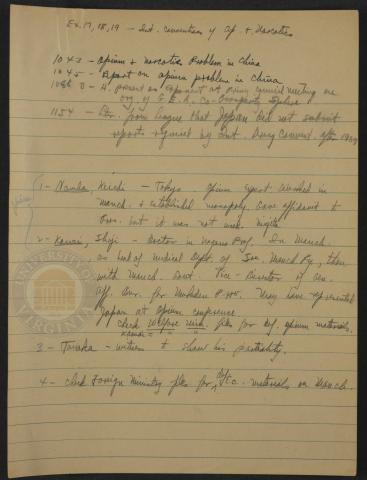 Ex. 17, 18, 19 - Int. Convention of Op. & Narcotics
1043 - Opium & narcotics Problem in China
1045 - Report on opium problem in China
1086 D - present as opponent at privy council meeting re
org. of G.E.A. Co-Prosperity Sphere
1154 - from League that Japan did not submit
reports required by Int. Drug Convent. after 1939
1 - Keishi - Tokyo. opium expert worked in
Manch. & established monopoly. Gave affidavit to
but it was not used.
2 - Kawai, Shoji - Doctor in In Manch.
as of Medical Dept. of So. Manch Ry, then
with Manch. Govt. Vice-Director of Gen.
aff. Bur. for Mukden May have represented
Japan at opium conference.
Check Welfare Min. files for opium materials.
3 - Tanaka - witness to show his partiality.
4 - Check Foreign Ministry files for etc. materials on Manch.
UNIVERSITY OF VIRGINIA